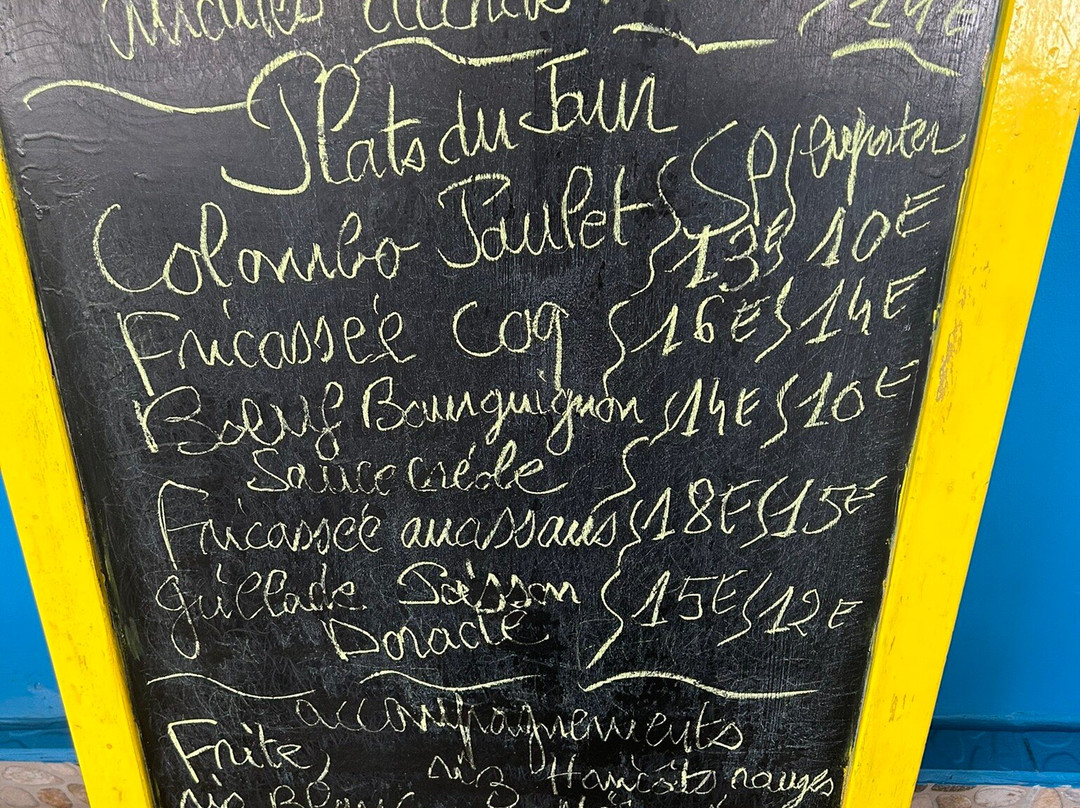 14€
Plats du Jour
SP / emporter
Colombo Poulet 13€ 10€
Fricassée Coq 16€ 14€
Bœuf Bourguignon 14€ 10€
Sauce créole
Fricassée ouassous 18€ 15€
Grillade Poisson 15€ 12€
Dorade
accompagnements
Frite, riz Haricots rouges
riz Blanc